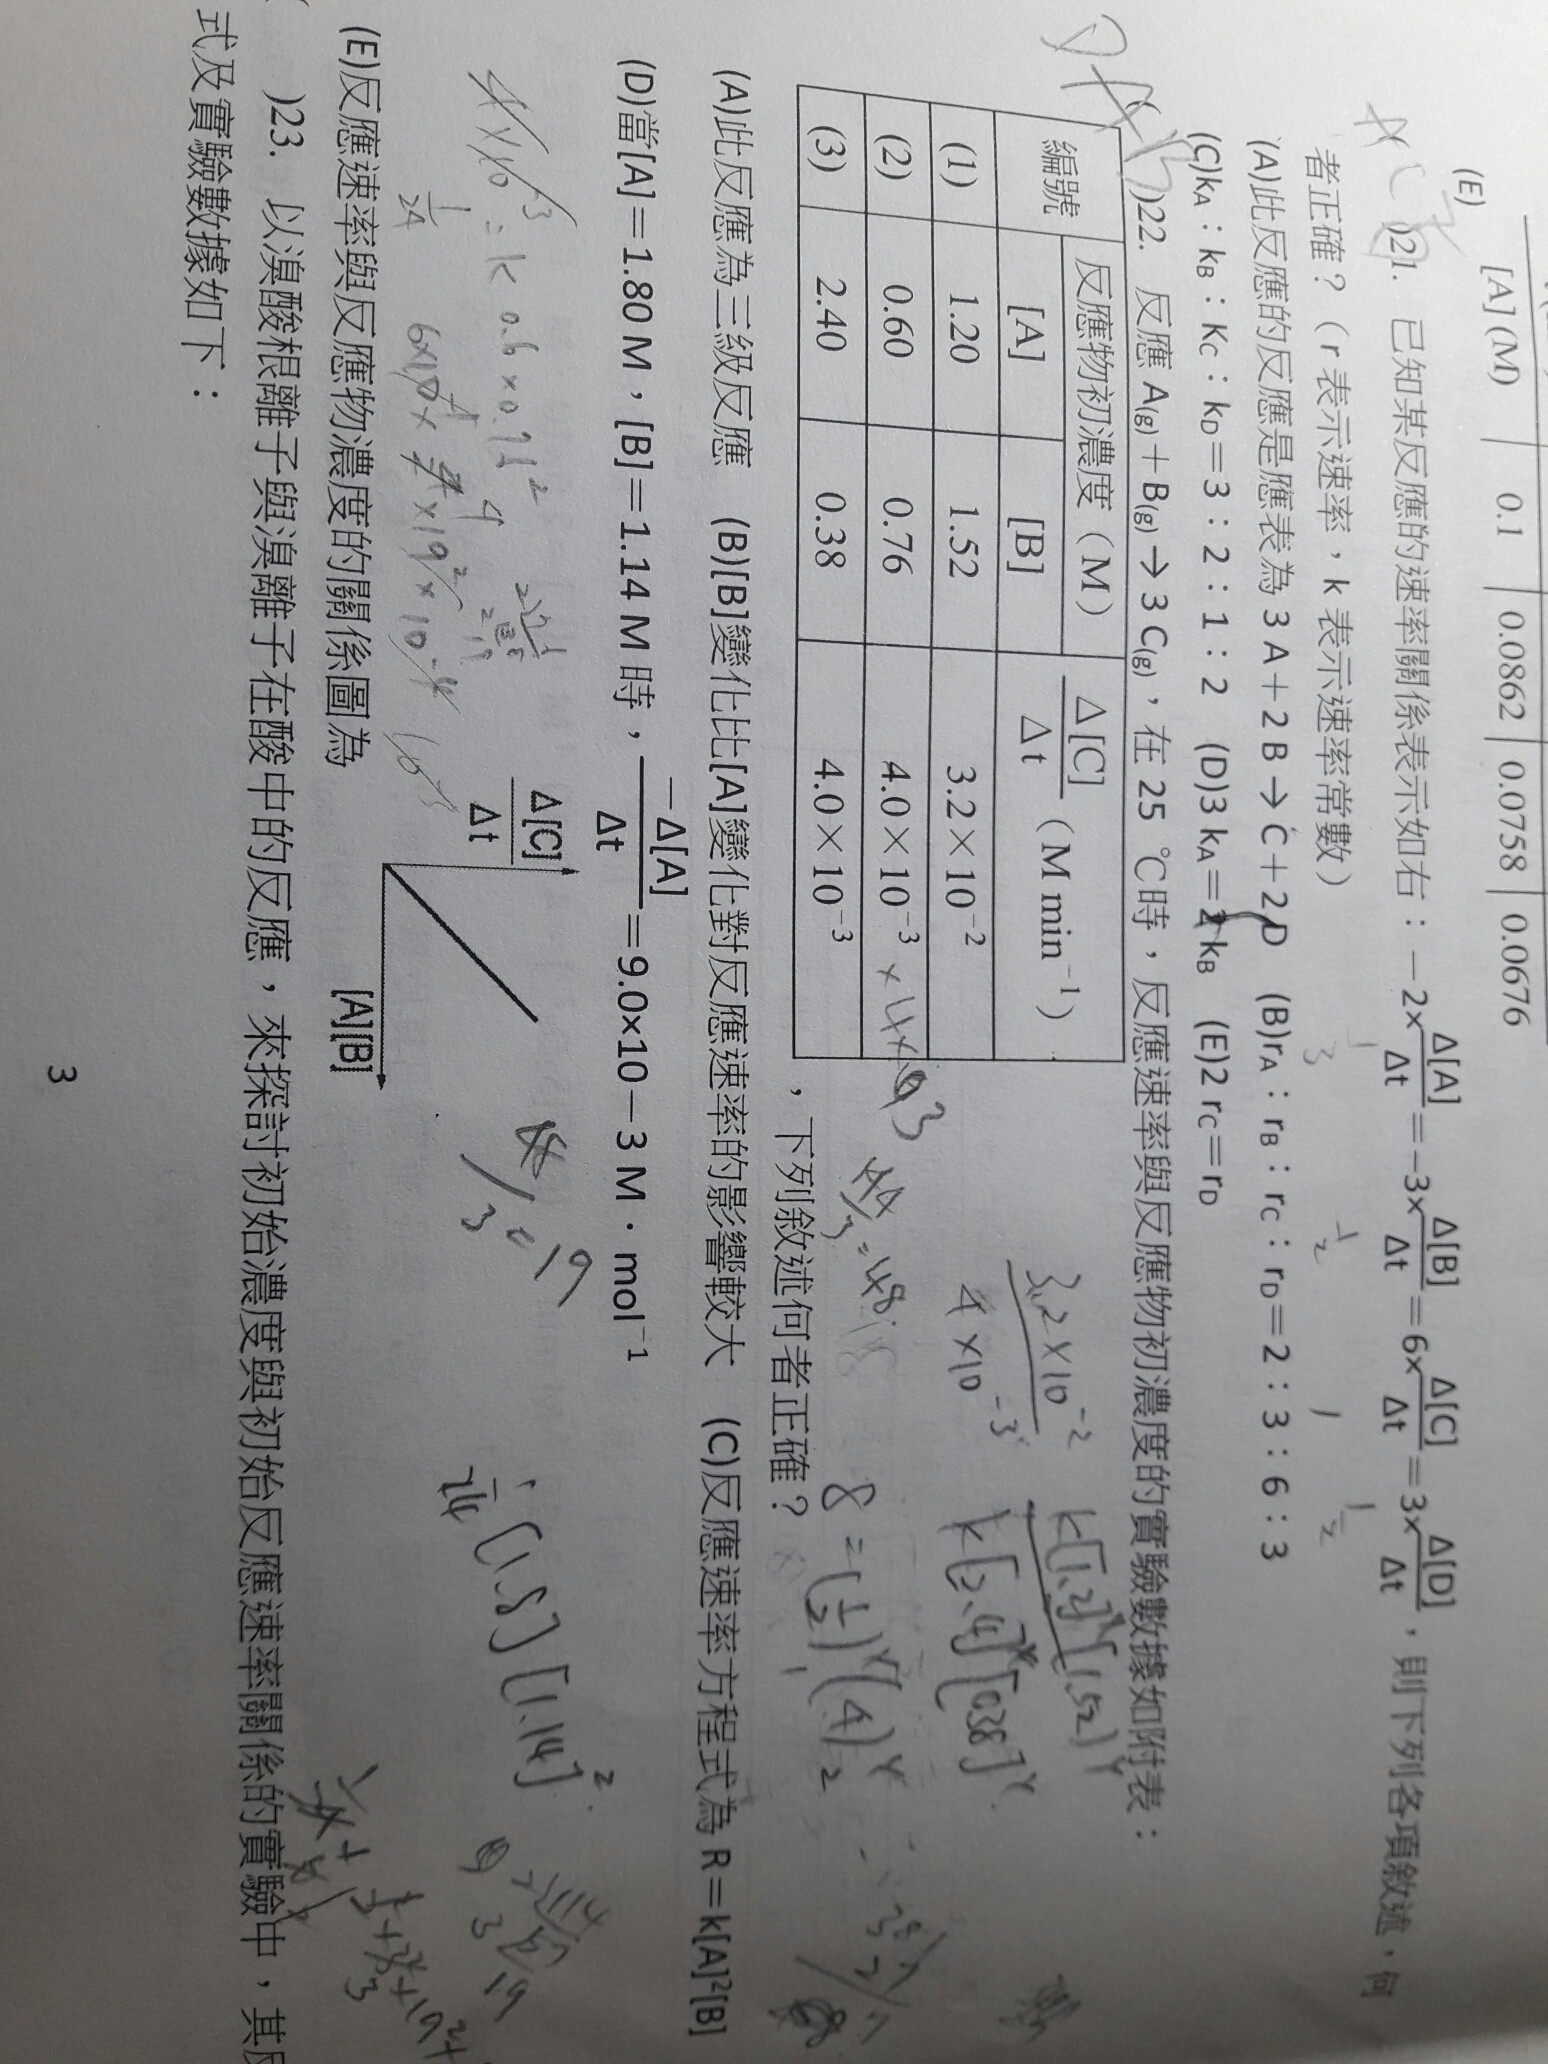 [A] (M) 0.1 0.0862 0.0758 0.0676
(E)
)21. 已知某反應的速率關係表示如右：－2×Δ[A]/Δt＝－3×Δ[B]/Δt＝6×Δ[C]/Δt＝3×Δ[D]/Δt，則下列各項敘述，何
者正確？（r 表示速率，k 表示速率常數）
(A)此反應的反應是應表為 3 A＋2 B→C＋2 D (B)rA：rB：rC：rD＝2：3：6：3
(C)kA：kB：KC：kD＝3：2：1：2 (D)3 kA＝2 kB (E)2 rC＝rD
)22. 反應 A(g)＋B(g)→3 C(g)，在 25 ℃時，反應速率與反應物初濃度的實驗數據如附表：
編號 反應物初濃度（M） Δ[C]/Δt（M min⁻¹）
[A] [B]
(1) 1.20 1.52 3.2×10⁻²
(2) 0.60 0.76 4.0×10⁻³
(3) 2.40 0.38 4.0×10⁻³
，下列敘述何者正確？
3.2×10⁻²
4×10⁻³
k[1.2]ˣ[1.52]ʸ
k[2.4]ˣ[0.38]ʸ
8=(1/2)ˣ(4)ʸ
(A)此反應為三級反應 (B)[B]變化比[A]變化對反應速率的影響較大 (C)反應速率方程式為 R＝k[A]²[B]
(D)當[A]＝1.80 M，[B]＝1.14 M 時，－Δ[A]/Δt＝9.0×10－3 M‧mol⁻¹
1/24 [1.8][1.14]²
(E)反應速率與反應物濃度的關係圖為
Δ[C]/Δt
[A][B]
)23. 以溴酸根離子與溴離子在酸中的反應，來探討初始濃度與初始反應速率關係的實驗中，其反
式及實驗數據如下：
3